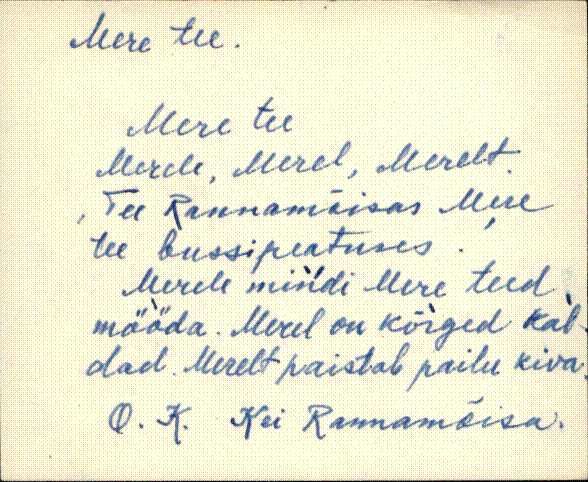 Mere tee.
Mere tee
Merele, Merel, Merelt.
, Tee Rannamõisas Mere
tee bussipeatuses.
Merele mindi Mere teed
mööda. Merel on kõrged kal-
dad. Merelt paistab pailu kiva.
O. K. Kei Rannamõisa.